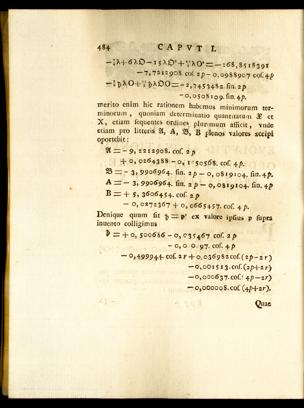 484 CAPUT I.
— 7,7212908. cos. 2p — 0,0988907 cos. 4p
— 2,7453482. sin. 2p
— 0,0508109. sin. 4p.
merito enim hic rationem habemus minorum ter-
minorum, quoniam determinatio quantitatum X et
X, etiam sequentes ordines plurimum afficit, vnde
etiam pro litteris 𝔄, A, 𝔅, B plenos valores accipi
oportebit:
𝔄 = — 9, 2212908. cos. 2p
𝔅 = — 3, 9906964. sin. 2p — 0,0819104. sin. 4p.
A = — 3, 9906964. sin. 2p — 0,0819104. sin. 4p
B = + 5, 3606454. cos. 2p
— 0,0272367 + 0,0665457. cos. 4p.
Denique quum sit 𝔭 = p' ex valore ipsius p supra
inuento colligimus
𝔭 = + 0, 500686 — 0,035467 cos. 2p
— 0,499944 cos. 2r + 0,036982 cos. (2p—2r)
— 0,001513. cos. (2p+2r)
— 0,000637. cos. (4p—2r)
— 0,000008. cos. (4p+2r).
Quae